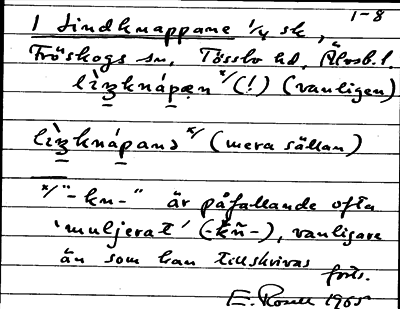 1-8
1 Lindknappane 1/4 sk,
Fröskogs sn, Tössbo hd, Älvsb. l.
lìʒknápæn x/(!) (vanligen)
lìʒknápanə x/ (mera sällan)
x/ "-kn-" är påfallande ofta
'muljerat' (-k̃ñ-), vanligare
än som kan tillskrivas
forts.
E. Rosell 1965